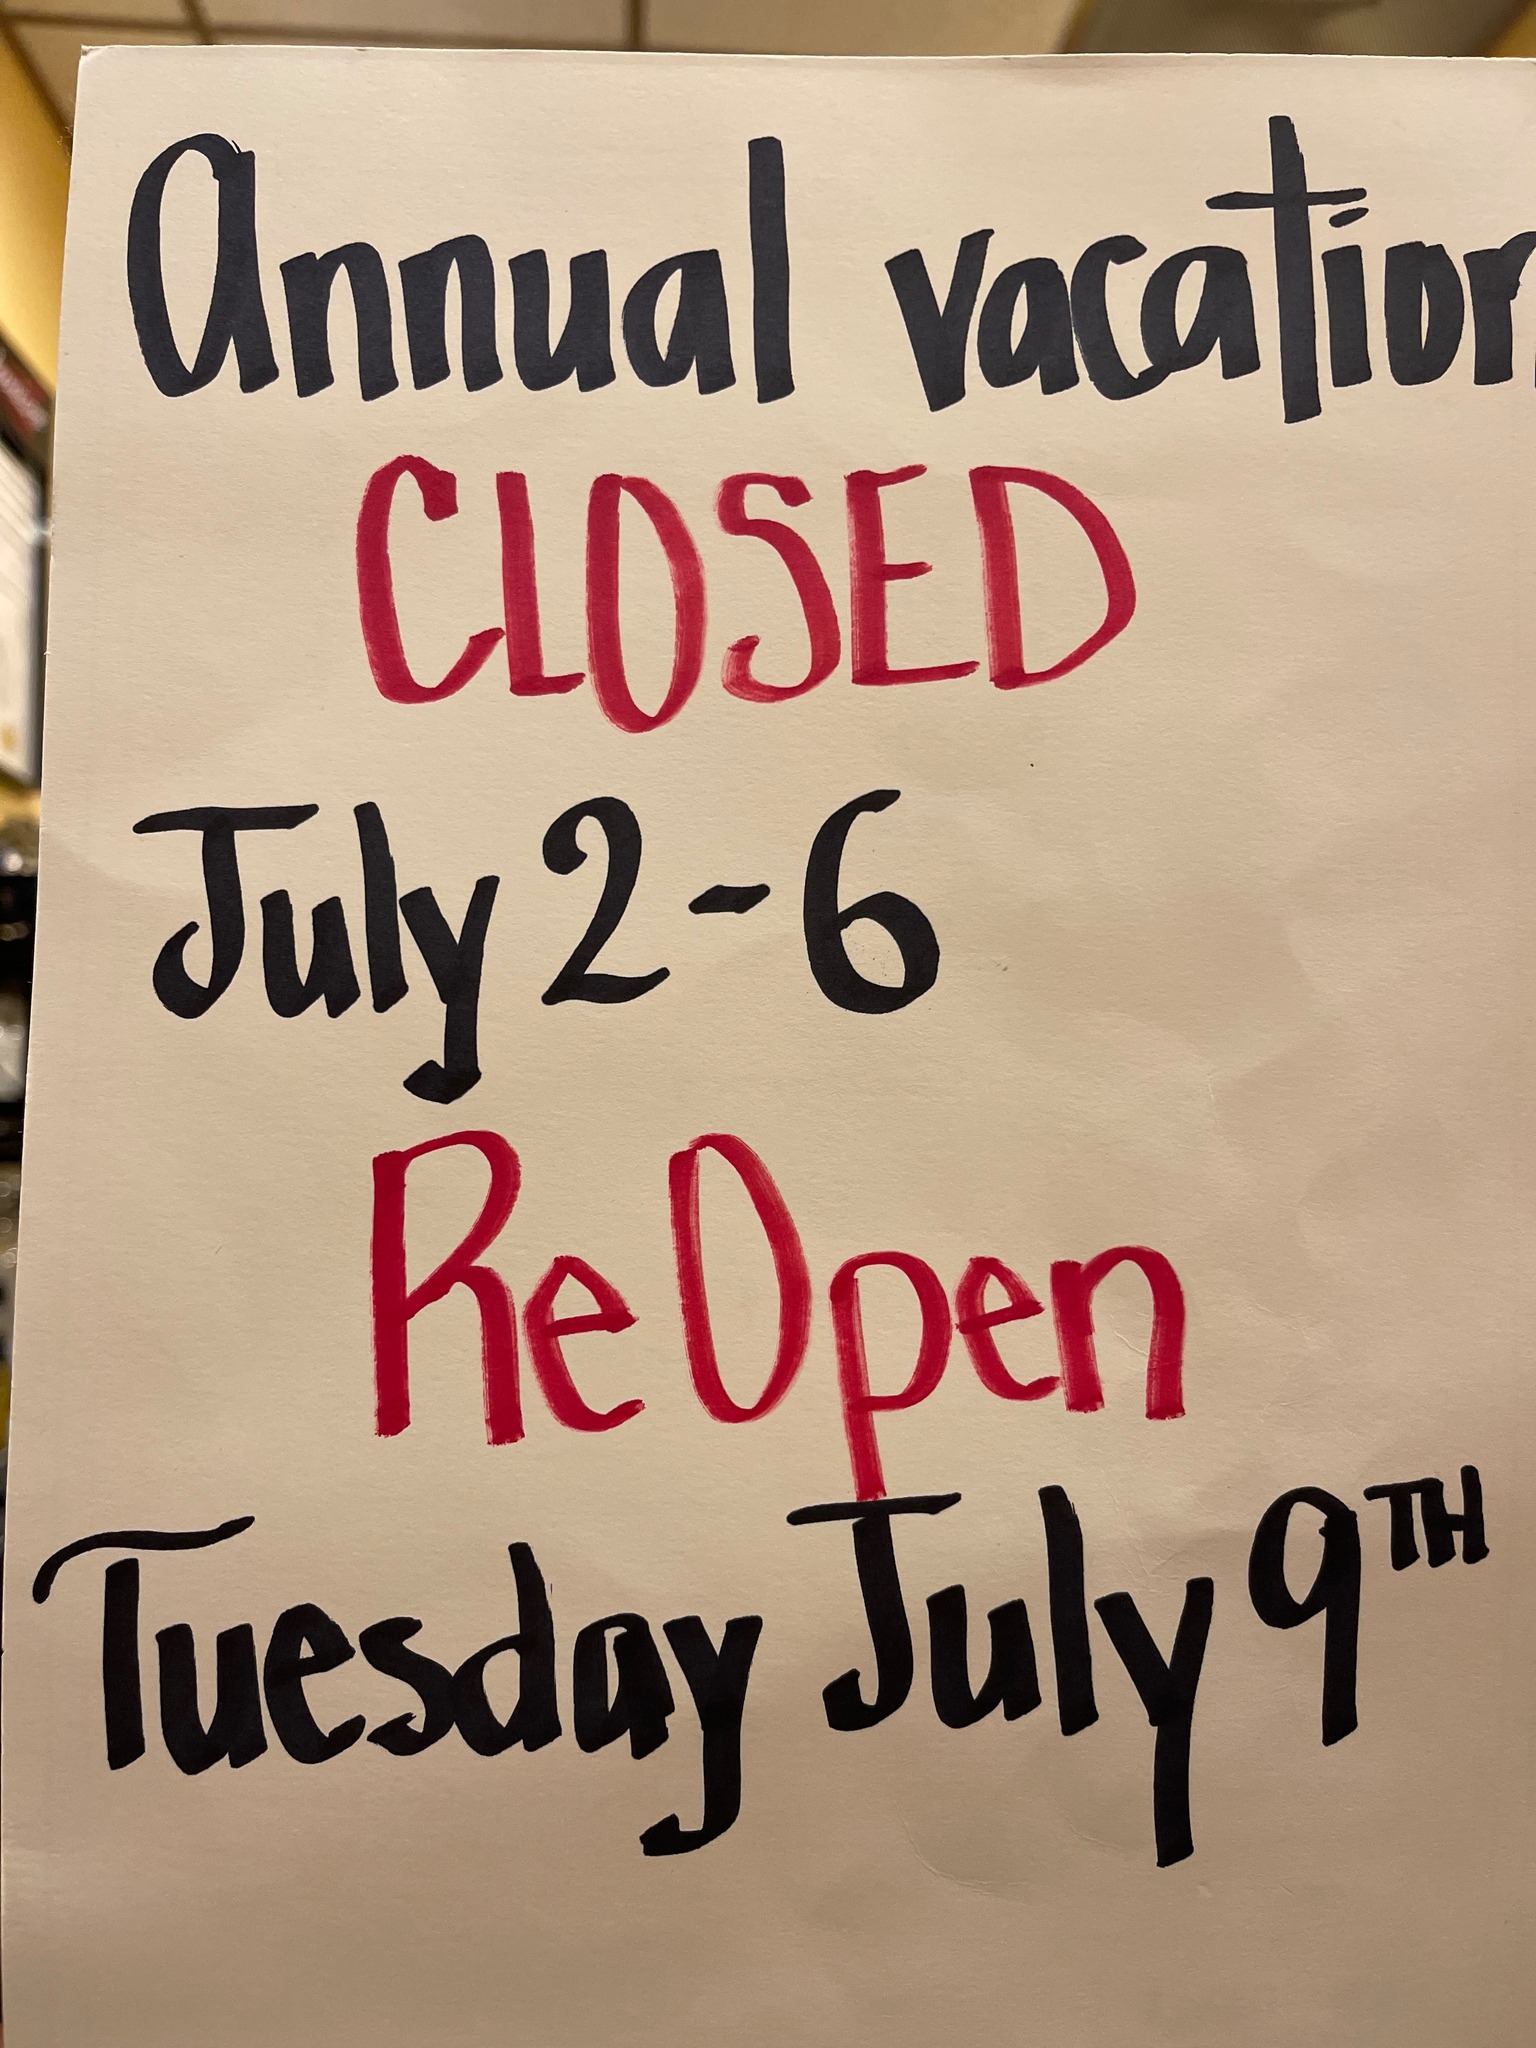 Annual vacation
CLOSED
July 2-6
ReOpen
Tuesday July 9TH